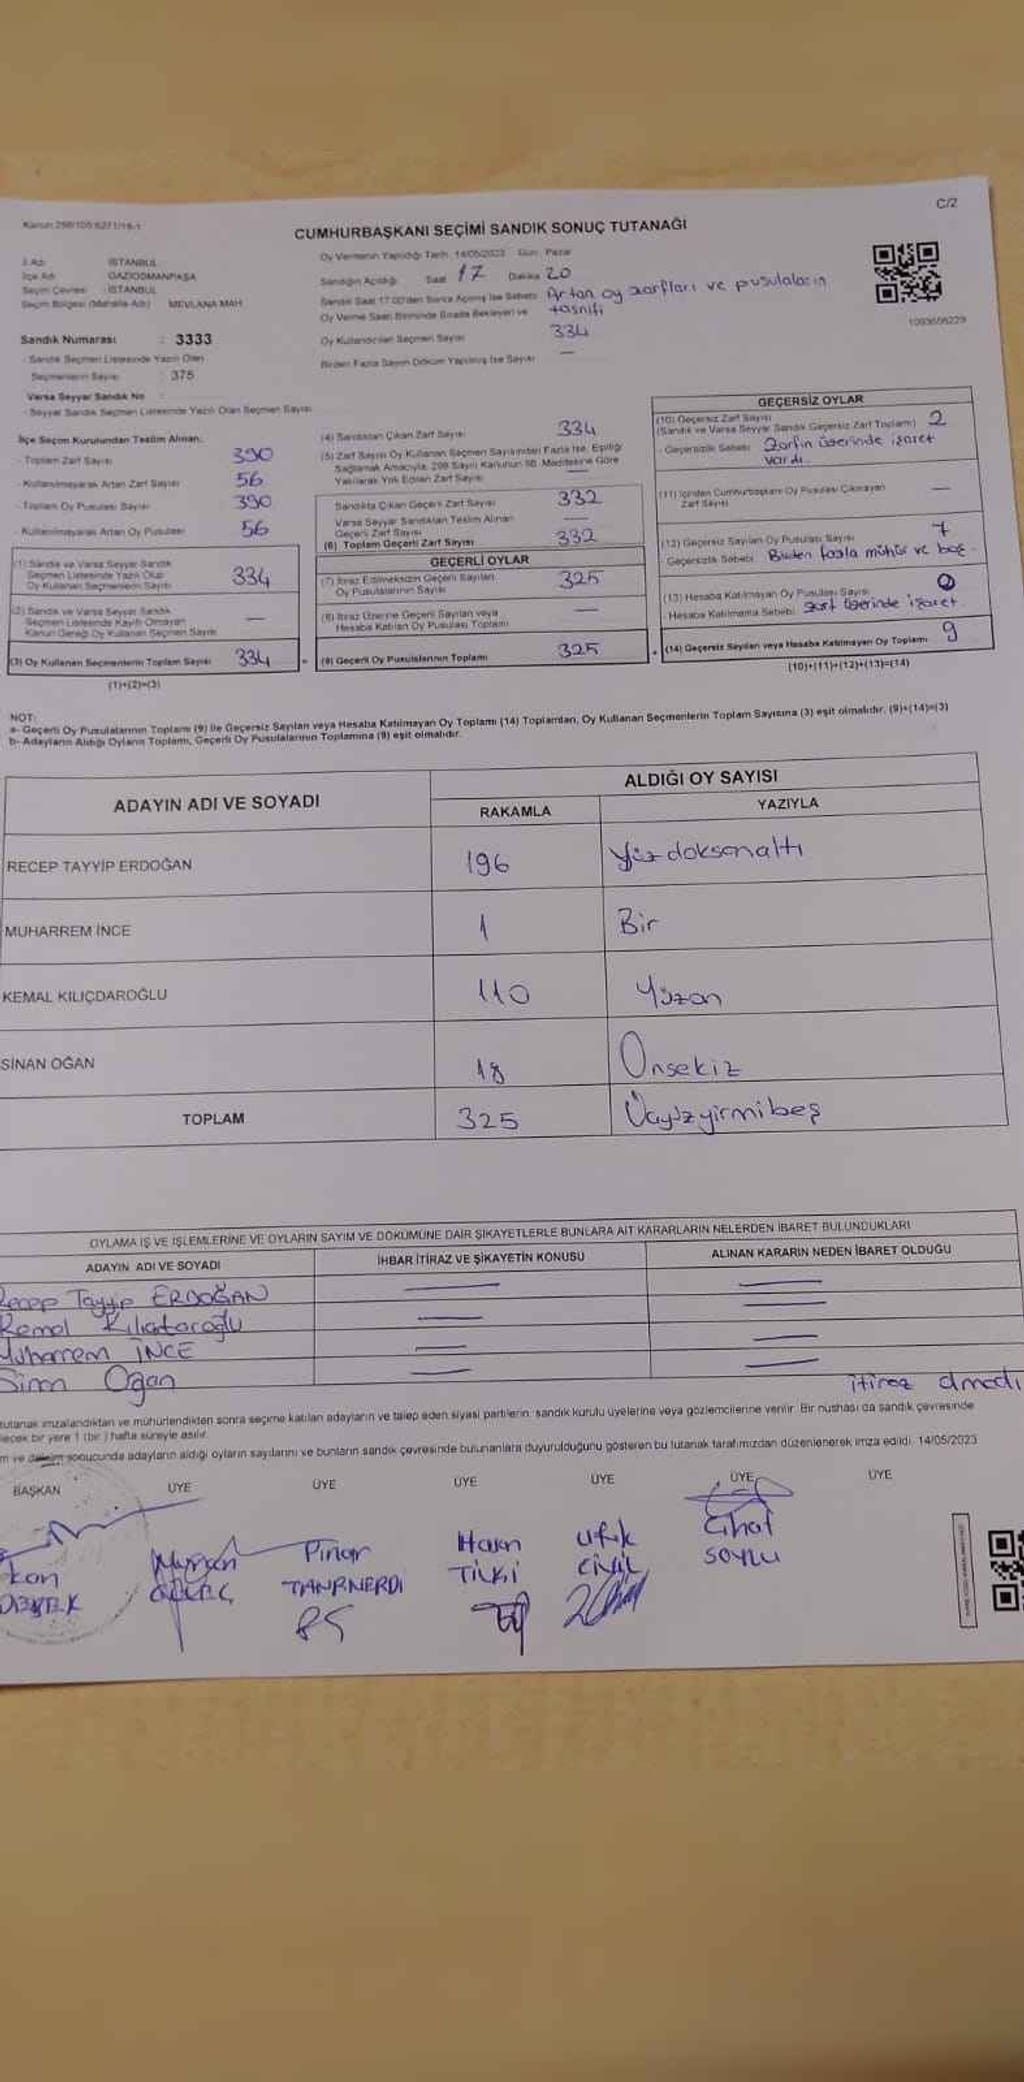 C/2
Kanun:298/105:6271/16-1
CUMHURBAŞKANI SEÇİMİ SANDIK SONUÇ TUTANAĞI
İl Adı : İSTANBUL
İlçe Adı : GAZİOSMANPAŞA
Seçim Çevresi : İSTANBUL
Seçim Bölgesi (Mahalle Adı) : MEVLANA MAH
Sandık Numarası : 3333
- Sandık Seçmen Listesinde Yazılı Olan
Seçmenlerin Sayısı : 375
Varsa Seyyar Sandık No :
- Seyyar Sandık Seçmen Listesinde Yazılı Olan Seçmen Sayısı
Oy Vermenin Yapıldığı Tarih 14/05/2023 Gün: Pazar
Sandığın Açıldığı Saat 17 Dakika 20
Sandık Saat 17:00'den Sonra Açılmış İse Sebebi Artan oy zarfları ve pusulaların
tasnifi
Oy Verme Saati Bitiminde Sırada Bekleyen ve
Oy Kullandırılan Seçmen Sayısı 334
Birden Fazla Sayım Döküm Yapılmış İse Sayısı —
1093606229
İlçe Seçim Kurulundan Teslim Alınan;
- Toplam Zarf Sayısı 390
- Kullanılmayarak Artan Zarf Sayısı 56
- Toplam Oy Pusulası Sayısı 390
- Kullanılmayarak Artan Oy Pusulası 56
(1) Sandık ve Varsa Seyyar Sandık
Seçmen Listesinde Yazılı Olup
Oy Kullanan Seçmenlerin Sayısı 334
(2) Sandık ve Varsa Seyyar Sandık
Seçmen Listesinde Kayıtlı Olmayan
Kanun Gereği Oy Kullanan Seçmen Sayısı —
(3) Oy Kullanan Seçmenlerin Toplam Sayısı 334
(1)+(2)=(3)
(4) Sandıktan Çıkan Zarf Sayısı 334
(5) Zarf Sayısı Oy Kullanan Seçmen Sayısından Fazla İse, Eşitliği
Sağlamak Amacıyla, 298 Sayılı Kanunun 98. Maddesine Göre
Yakılarak Yok Edilen Zarf Sayısı —
Sandıkta Çıkan Geçerli Zarf Sayısı 332
Varsa Seyyar Sandıktan Teslim Alınan
Geçerli Zarf Sayısı —
(6) Toplam Geçerli Zarf Sayısı 332
GEÇERLİ OYLAR
(7) İtiraz Edilmeksizin Geçerli Sayılan
Oy Pusulalarının Sayısı 325
(8) İtiraz Üzerine Geçerli Sayılan veya
Hesaba Katılan Oy Pusulası Toplamı —
(9) Geçerli Oy Pusulalarının Toplamı 325
GEÇERSİZ OYLAR
(10) Geçersiz Zarf Sayısı
(Sandık ve Varsa Seyyar Sandık Geçersiz Zarf Toplamı) 2
- Geçersizlik Sebebi: Zarfın üzerinde işaret
vardı.
(11) İçinden Cumhurbaşkanı Oy Pusulası Çıkmayan
Zarf Sayısı —
(12) Geçersiz Sayılan Oy Pusulası Sayısı 7
Geçersizlik Sebebi: Birden fazla mühür ve boş.
(13) Hesaba Katılmayan Oy Pusulası Sayısı 0
Hesaba Katılmama Sebebi: zarf üzerinde işaret.
(14) Geçersiz Sayılan veya Hesaba Katılmayan Oy Toplamı 9
(10)+(11)+(12)+(13)=(14)
NOT:
a- Geçerli Oy Pusulalarının Toplamı (9) ile Geçersiz Sayılan veya Hesaba Katılmayan Oy Toplamı (14) Toplamları, Oy Kullanan Seçmenlerin Toplam Sayısına (3) eşit olmalıdır. (9)+(14)=(3)
b- Adayların Aldığı Oyların Toplamı, Geçerli Oy Pusulalarının Toplamına (9) eşit olmalıdır.
ADAYIN ADI VE SOYADI
ALDIĞI OY SAYISI
RAKAMLA YAZIYLA
RECEP TAYYİP ERDOĞAN 196 Yüzdoksanaltı
MUHARREM İNCE 1 Bir
KEMAL KILIÇDAROĞLU 110 Yüzon
SİNAN OĞAN 18 Onsekiz
TOPLAM 325 Üçyüzyirmibeş
OYLAMA İŞ VE İŞLEMLERİNE VE OYLARIN SAYIM VE DÖKÜMÜNE DAİR ŞİKAYETLERLE BUNLARA AİT KARARLARIN NELERDEN İBARET BULUNDUKLARI
ADAYIN ADI VE SOYADI İHBAR İTİRAZ VE ŞİKAYETİN KONUSU ALINAN KARARIN NEDEN İBARET OLDUĞU
Recep Tayyip ERDOĞAN — —
Kemal Kılıçtaroğlu — —
Muharrem İNCE — —
Sinan Oğan — —
itiraz olmadı
tutanak imzalandıktan ve mühürlendikten sonra seçime katılan adayların ve talep eden siyasi partilerin, sandık kurulu üyelerine veya gözlemcilerine verilir. Bir nüshası da sandık çevresinde
lecek bir yere 1 (bir) hafta süreyle asılır.
m ve döküm sonucunda adayların aldığı oyların sayılarını ve bunların sandık çevresinde bulunanlara duyurulduğunu gösteren bu tutanak tarafımızdan düzenlenerek imza edildi. 14/05/2023
BAŞKAN ÜYE ÜYE ÜYE ÜYE ÜYE ÜYE
Pınar
TANRIVERDİ
Hasan
TİLKİ
Ufuk
CİVİL
Cihat
SOYLU